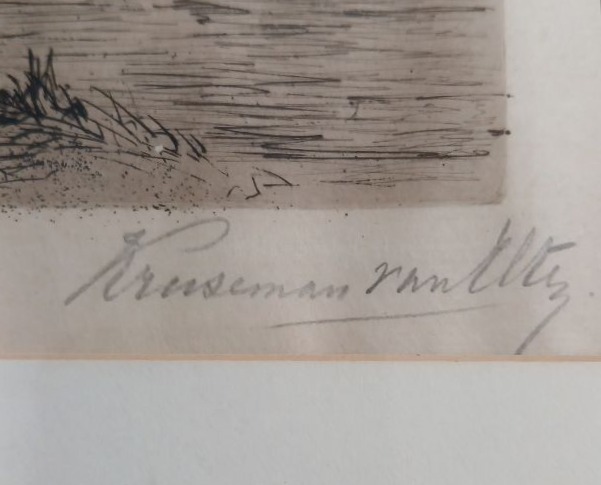 Kruseman van Elten